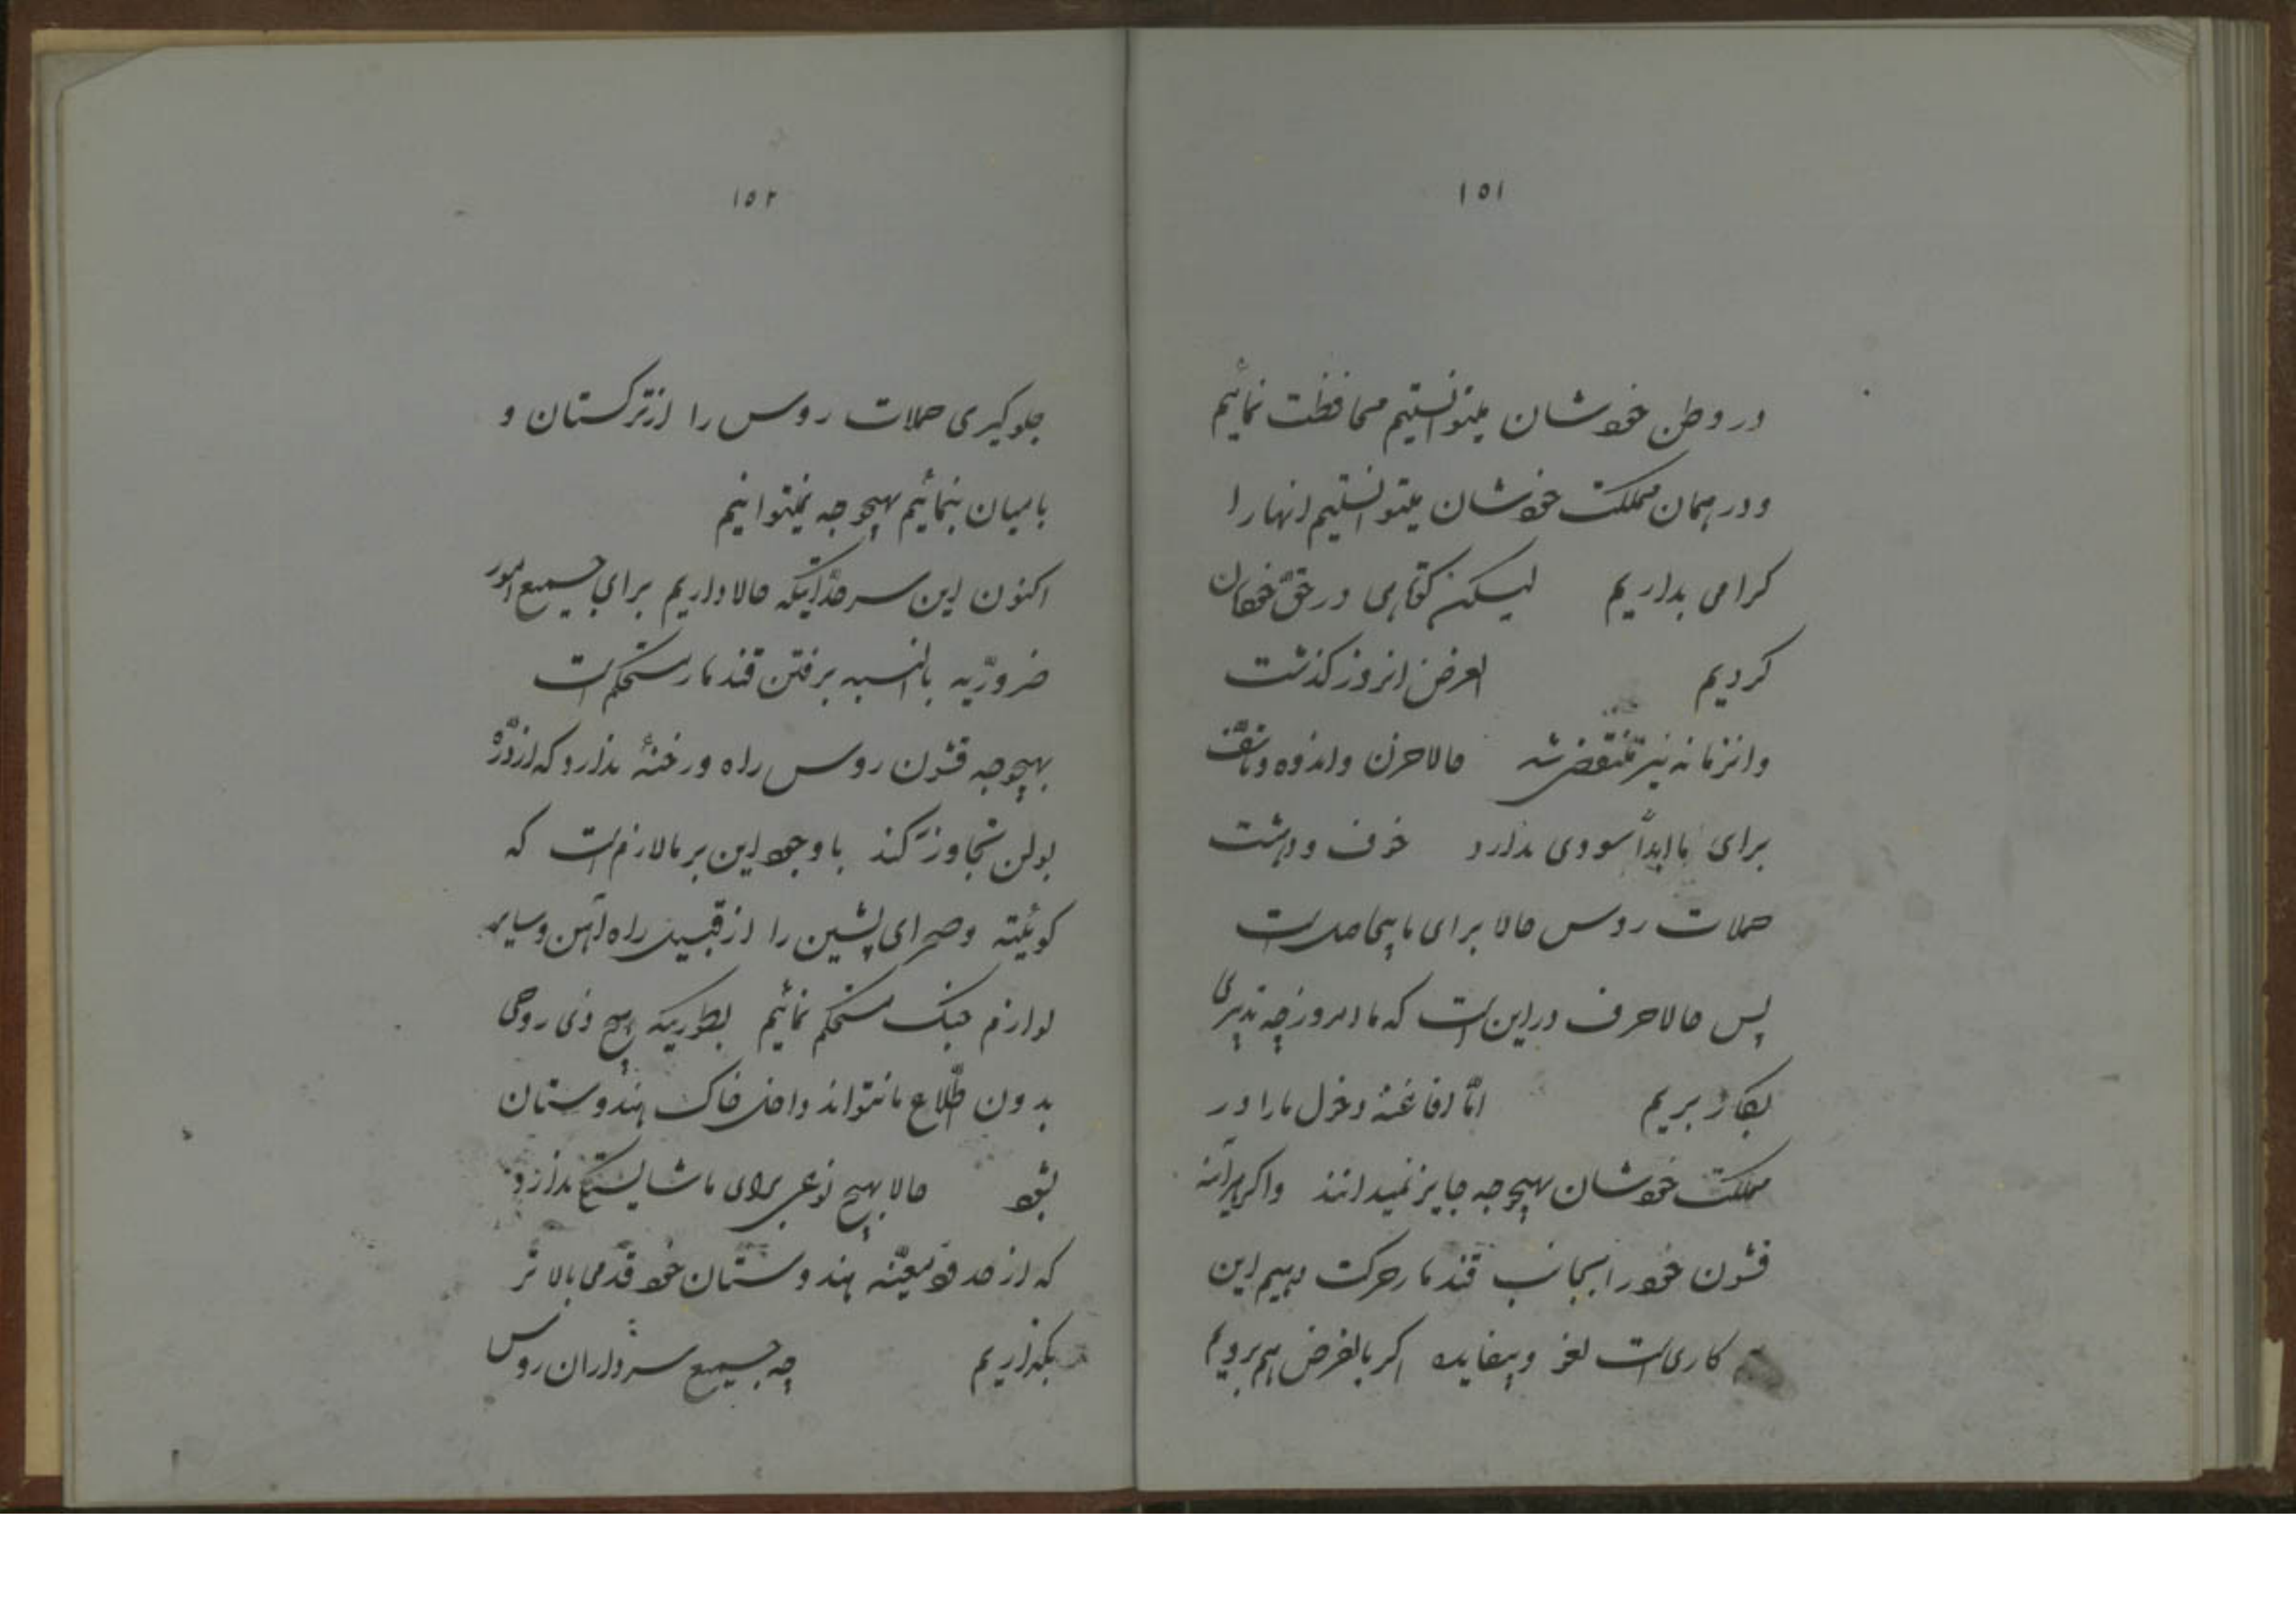 ۱۵۱
در وطن خودشان میتوانستیم محافظت نمائیم
و در همان مملکت خودشان میتوانستیم انها را
کرامی بداریم لیکن کوتاهی در حق خودمان
کردیم الغرض انروز کذشت
و انزمانه نیز منقضی شد حالا حزن و اندوه و تاسف
برای ما ابداً سودی ندارد خوف و دهشت
حملات روس حالا برای ما بیحاصل است
پس حالا حرف در این است که ما امروز چه تدبیری
بکار بریم امّا افاغنه دخول ما را در
مملکت خودشان بهیچوجه جایز نمیدانند و اکر هرآینه
قشون خود را بجانب قندهار حرکت دهیم این
کاری است لغو و بیفایده اکر بالفرض هم برویم
۱۵۲
جلوکیری حملات روس را از ترکستان و
بامیان بنمائیم بهیچوجه نمیتوانیم
اکنون این سرحدّاتیکه حالا داریم برای جمیع امور
ضروریّه بالنسبه برفتن قندهار مستحکم است
بهیچوجه قشون روس راه و رخنهٔ ندارد که از درّهٔ
بولن تجاوز کند با وجود این بر ما لازم است که
کویته و صحرای پشین را از قبیل راه آهن و سایر
لوازم جنک مستحکم نمائیم بطوریکه هیچ ذی روحی
بدون اطّلاع ما نتواند داخل خاک هندوستان
بشود حالا بهیچ نوعی برای ما شایستکی ندارد
که از حدود معیّنه هندوستان خود قدمی بالاتر
بکذاریم چه جمیع سرداران روس